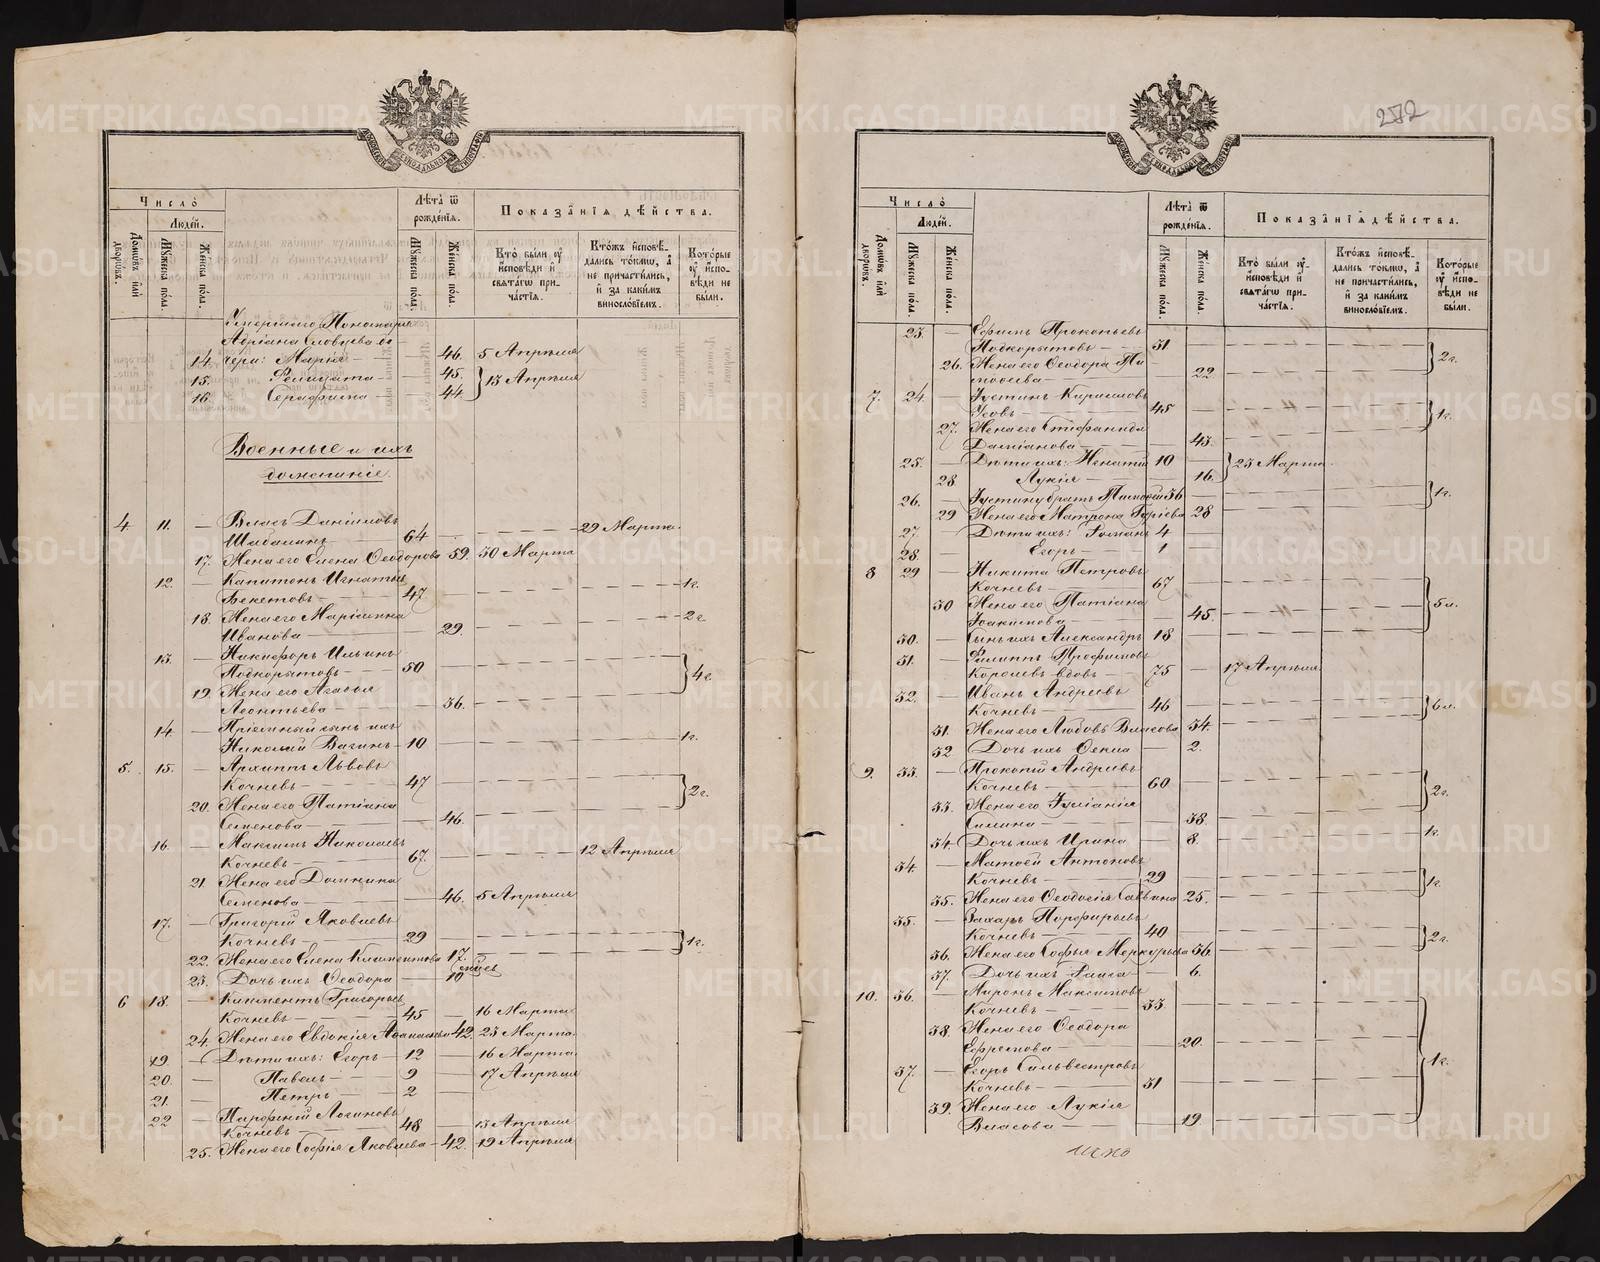 272
Число̀
Людей.
Домѡвъ или дворѡвъ.
Мꙋжеска пола.
Женска пола.
Лѣта ѿ рожденїѧ.
Мꙋжеска пола.
Женска пола.
Показанїѧ дѣйства.
Кто были ᲂу҆ исповѣди и свѧтагѡ причастїѧ.
Ктожъ исповѣдались токмѡ, а не причастились, и за какимъ винословїемъ.
Которые ᲂу҆ исповѣди не были.
Умершаго Пономаря
Адріана Словцева до
14. чери: Марія — 46. 5 Апрѣля
15. — 45. 13 Апрѣля
16. Серафима — 44.
Военные и ихъ
домашніе.
4 11. — Власъ Даніиловъ
— 64 — 29 Марта.
17. Жена его Елена Ѳеодорова 59. 30 Марта
12. — Капитонъ Игнатьевъ
Бекетовъ — 47 — 1г.
18. Жена его Маріамна
Иванова — 29. — 2г
13. — Никифоръ Ильинъ
Подкорытовъ — 50 — 4г.
19 Жена его Агафья
Леонтьева — 36.
14. — Пріемный сынъ ихъ
Николай Вагинъ — 10 — 1г.
5. 15. — Архиппъ Львовъ
Кочневъ — 47 — 2г.
20. Жена его Татіана
Семенова — 46.
16. — Максимъ Николаевъ
Кочневъ — 67. — 12 Апрѣля
21. Жена его Домникия
Семенова — 46. 5 Апрѣля
17. — Григорій Яковлевъ
Кочневъ — 29 — 1г.
22. Жена его Елена Климентова 17.
23. Дочь ихъ Ѳеодора — 10 мѣсь
6 18. — Климентъ Григорьевъ
Кочневъ — 45 — 16 Марта
24. Жена его Евдокія Аѳанасьева 42. 23 Марта.
19. — Дѣти ихъ: Егоръ — 12 — 16 Марта.
20. — Павелъ — 9 — 17 Апрѣля
21. — Петръ — 2
22 Парфеній Логиновъ
Кочневъ — 48 — 13 Апрѣля
25. Жена его Софія Яковлева — 42. 19 Апрѣля
Число̀
Людей.
Домѡвъ или дворѡвъ.
Мꙋжеска пола.
Женска пола.
Лѣта ѿ рожденїѧ.
Мꙋжеска пола.
Женска пола.
Показанїѧ дѣйства.
Кто были ᲂу҆ исповѣди и свѧтагѡ причастїѧ.
Ктожъ исповѣдались токмѡ, а не причастились, и за какимъ винословїемъ.
Которые ᲂу҆ исповѣди не были.
23. — Ефимъ Прокопьевъ
Подкорытовъ — 31 — 2г.
26. Жена его Ѳеодора Ти
моѳеева — 22
7. 24. — Іустинъ Кириловъ
Усовъ — 45 — 1г.
27. Жена его Стефанида
Даміанова — 43.
25. — Дѣти их: Игнатій 10 — 23 Марта.
28 Лукія — 16.
26. — Іустину братъ Тимоѳей 36 — 1г.
29 Жена его Матрона 28
27. — Дѣти ихъ: Романъ 4
28. — Егоръ — 1
8 29 — Никита Петровъ
Кочневъ — 67 — 5л.
30 Жена его Татіана
Іоакимова — 45.
30. — Сынъ ихъ Александръ 18
31. — Филиппъ Трофимовъ
Королевъ вдовъ — 75 — 17 Апрѣля
32. — Иванъ Андреевъ
Кочневъ — 46 — 6л.
31. Жена его Любовь Власова 34.
32 Дочь ихъ Ѳекла — 2.
9. 33. — Прокопій Андреевъ
Кочневъ — 60 — 2г.
33. Жена его Іуліанія
Силина — 38.
34. Дочь ихъ Ирина — 8. — 1г.
34. — Матѳей Антоновъ
Кочневъ — 29 — 1г.
35. Жена его Ѳеодосія Саввина 25.
35. — Захаръ Порфирьевъ
Кочневъ — 40 — 2г.
36. Жена его Софья Меркурьева 36.
37. Дочь ихъ Раиса — 6.
10. 36. — Миронъ Максимовъ
Кочневъ — 33. — 1г.
38. Жена его Ѳеодора
Ефремова — 20.
37. — Егоръ Сильвестровъ
Кочневъ — 31
39. Жена его Лукія
Власова — 19.
METRIKI.GASO-URAL.RU